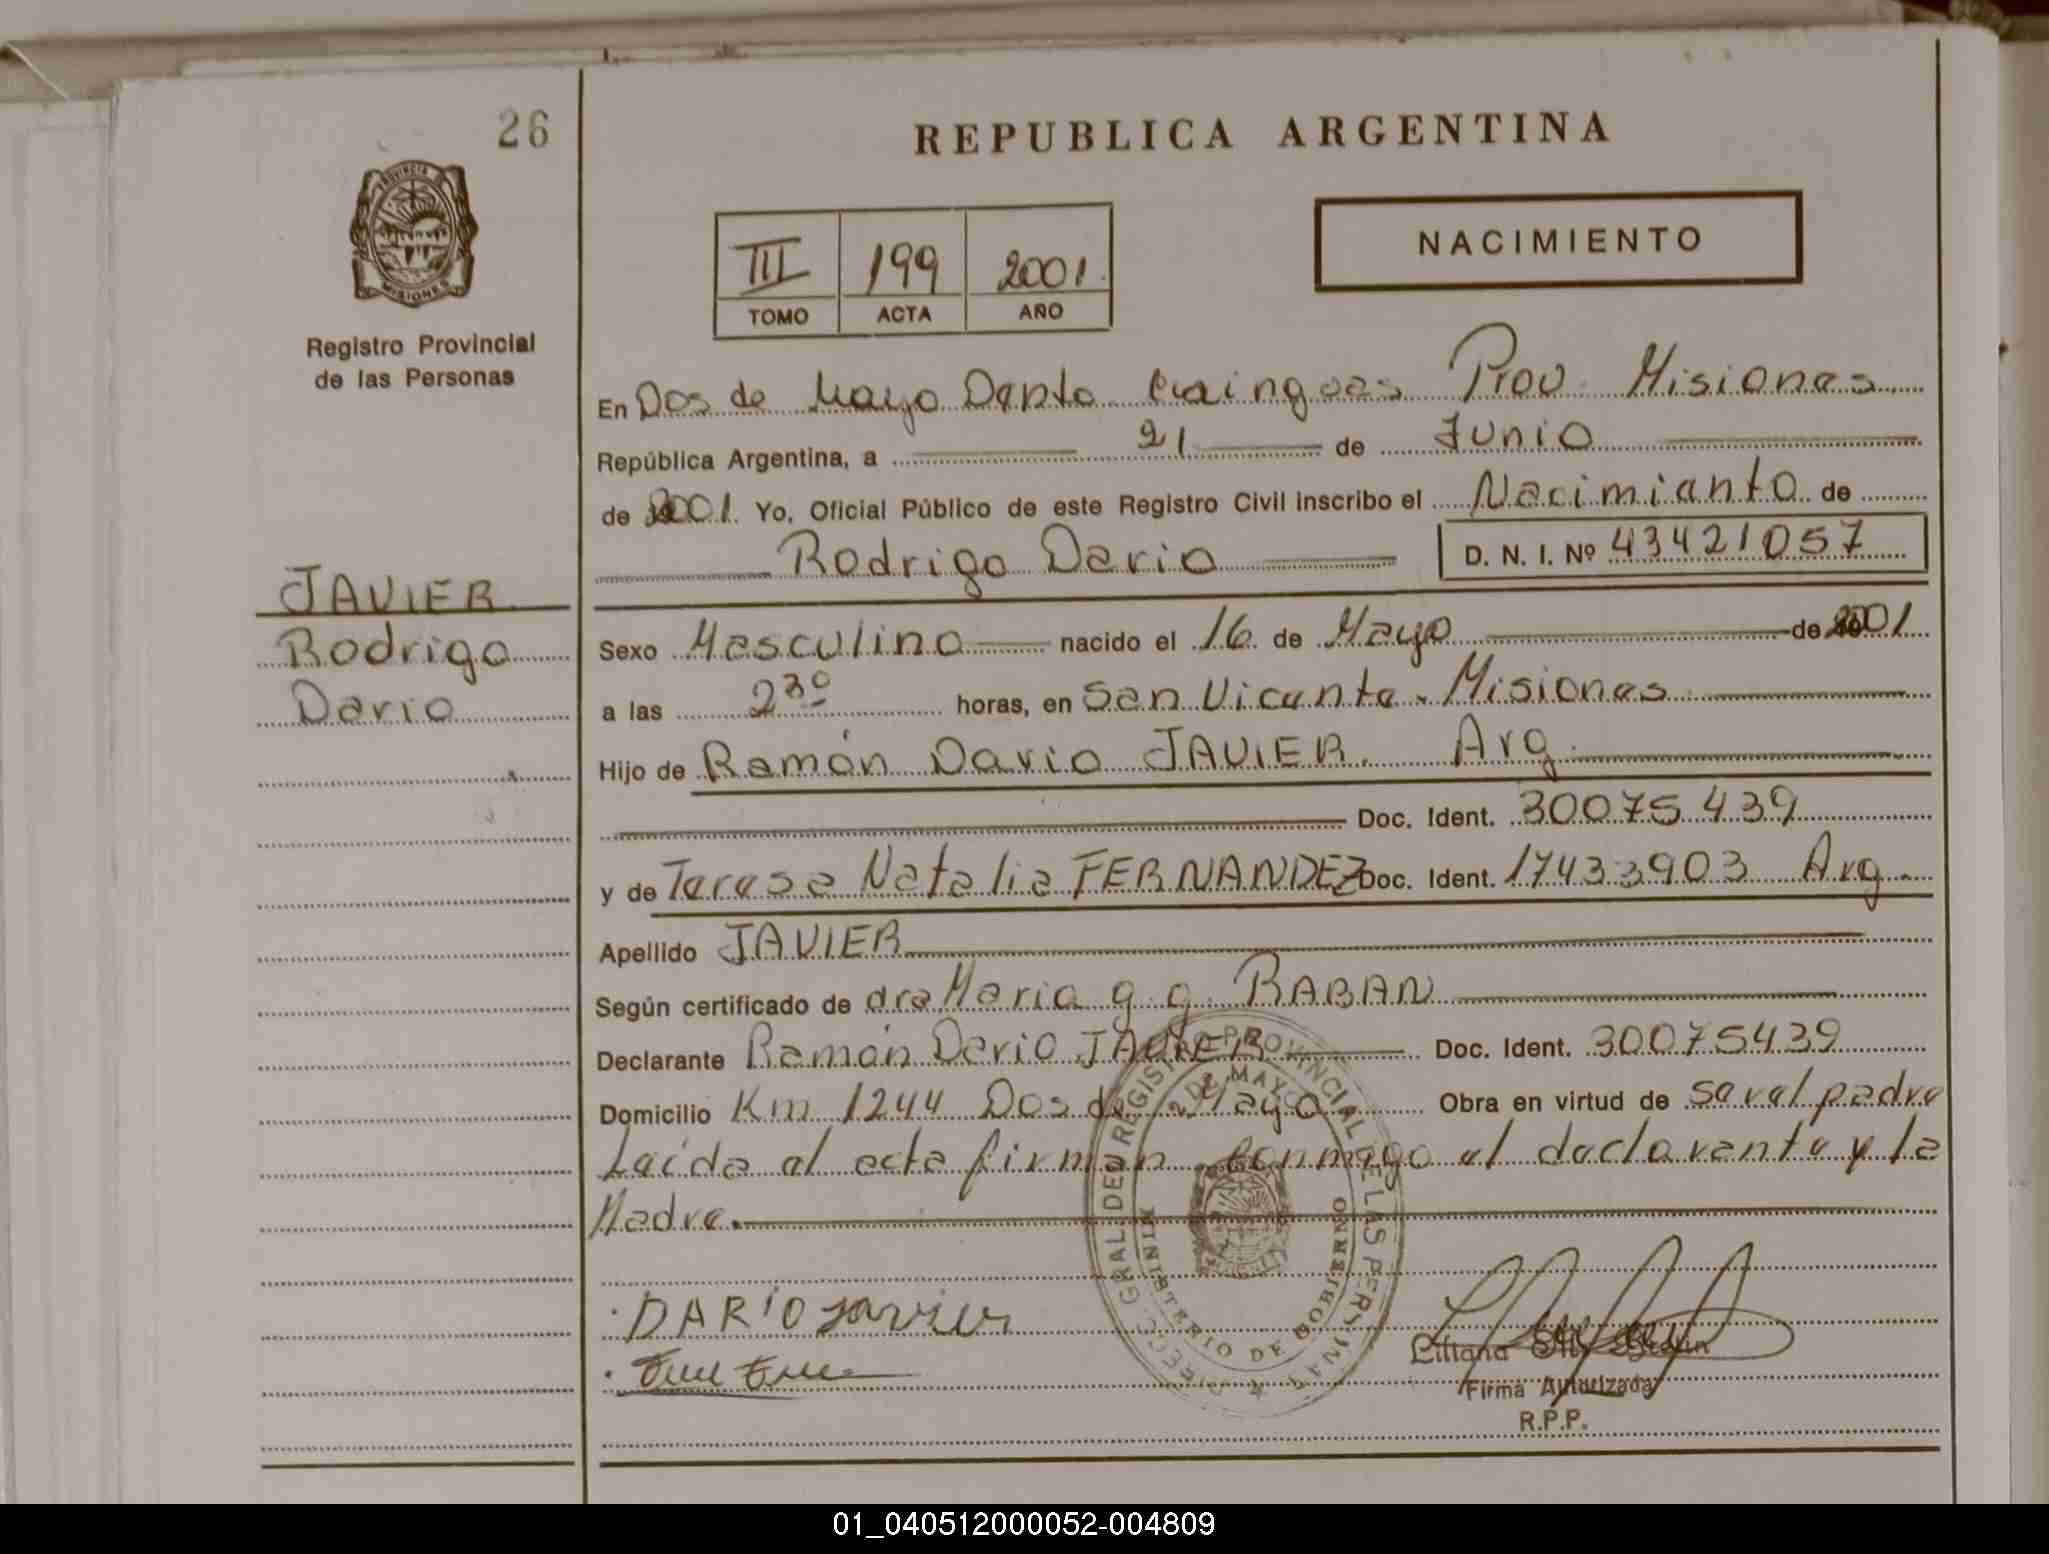 26
PROVINCIA DE
MISIONES
Registro Provincial
de las Personas
JAVIER
Rodrigo
Dario
REPUBLICA ARGENTINA
III 199 2001
TOMO ACTA AÑO
NACIMIENTO
En Dos de Mayo Depto Caingoas Prov. Misiones
República Argentina, a 21 de Junio
de 2001 Yo, Oficial Público de este Registro Civil inscribo el Nacimiento de
Rodrigo Dario D. N. I. Nº 43421057
Sexo Masculino nacido el 16 de Mayo de 2001
a las 2 30 horas, en San Vicente. Misiones
Hijo de Ramón Dario JAVIER. Arg.
Doc. Ident. 30075439
y de Teresa Natalia FERNANDEZ Doc. Ident. 17433903 Arg.
Apellido JAVIER
Según certificado de dra Maria g. g. RABAN
Declarante Ramón Dario JAVIER Doc. Ident. 30075439
Domicilio Km 1244 Dos de Mayo Obra en virtud de ser el padre
Leída el acta firman conmigo el declarante y la
Madre.
DIRECC. GRAL. DE REGISTRO PROVINCIAL DE LAS PERSONAS
2 DE MAYO
MINISTERIO DE GOBIERNO
DARIO Javier
Liliana
Firma Autorizada
R.P.P.
01_040512000052-004809